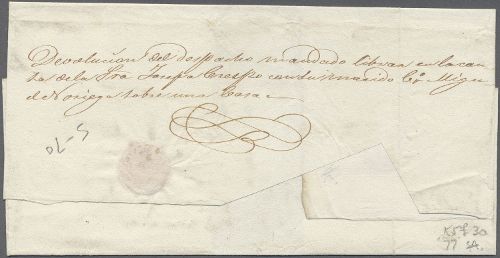 Devolucion del despacho mandado librar en la cau
sa de la Sra Josefa Crespo con su marido Co Migu
el Noriega sobre una Casa
K5f 30
77 SA.